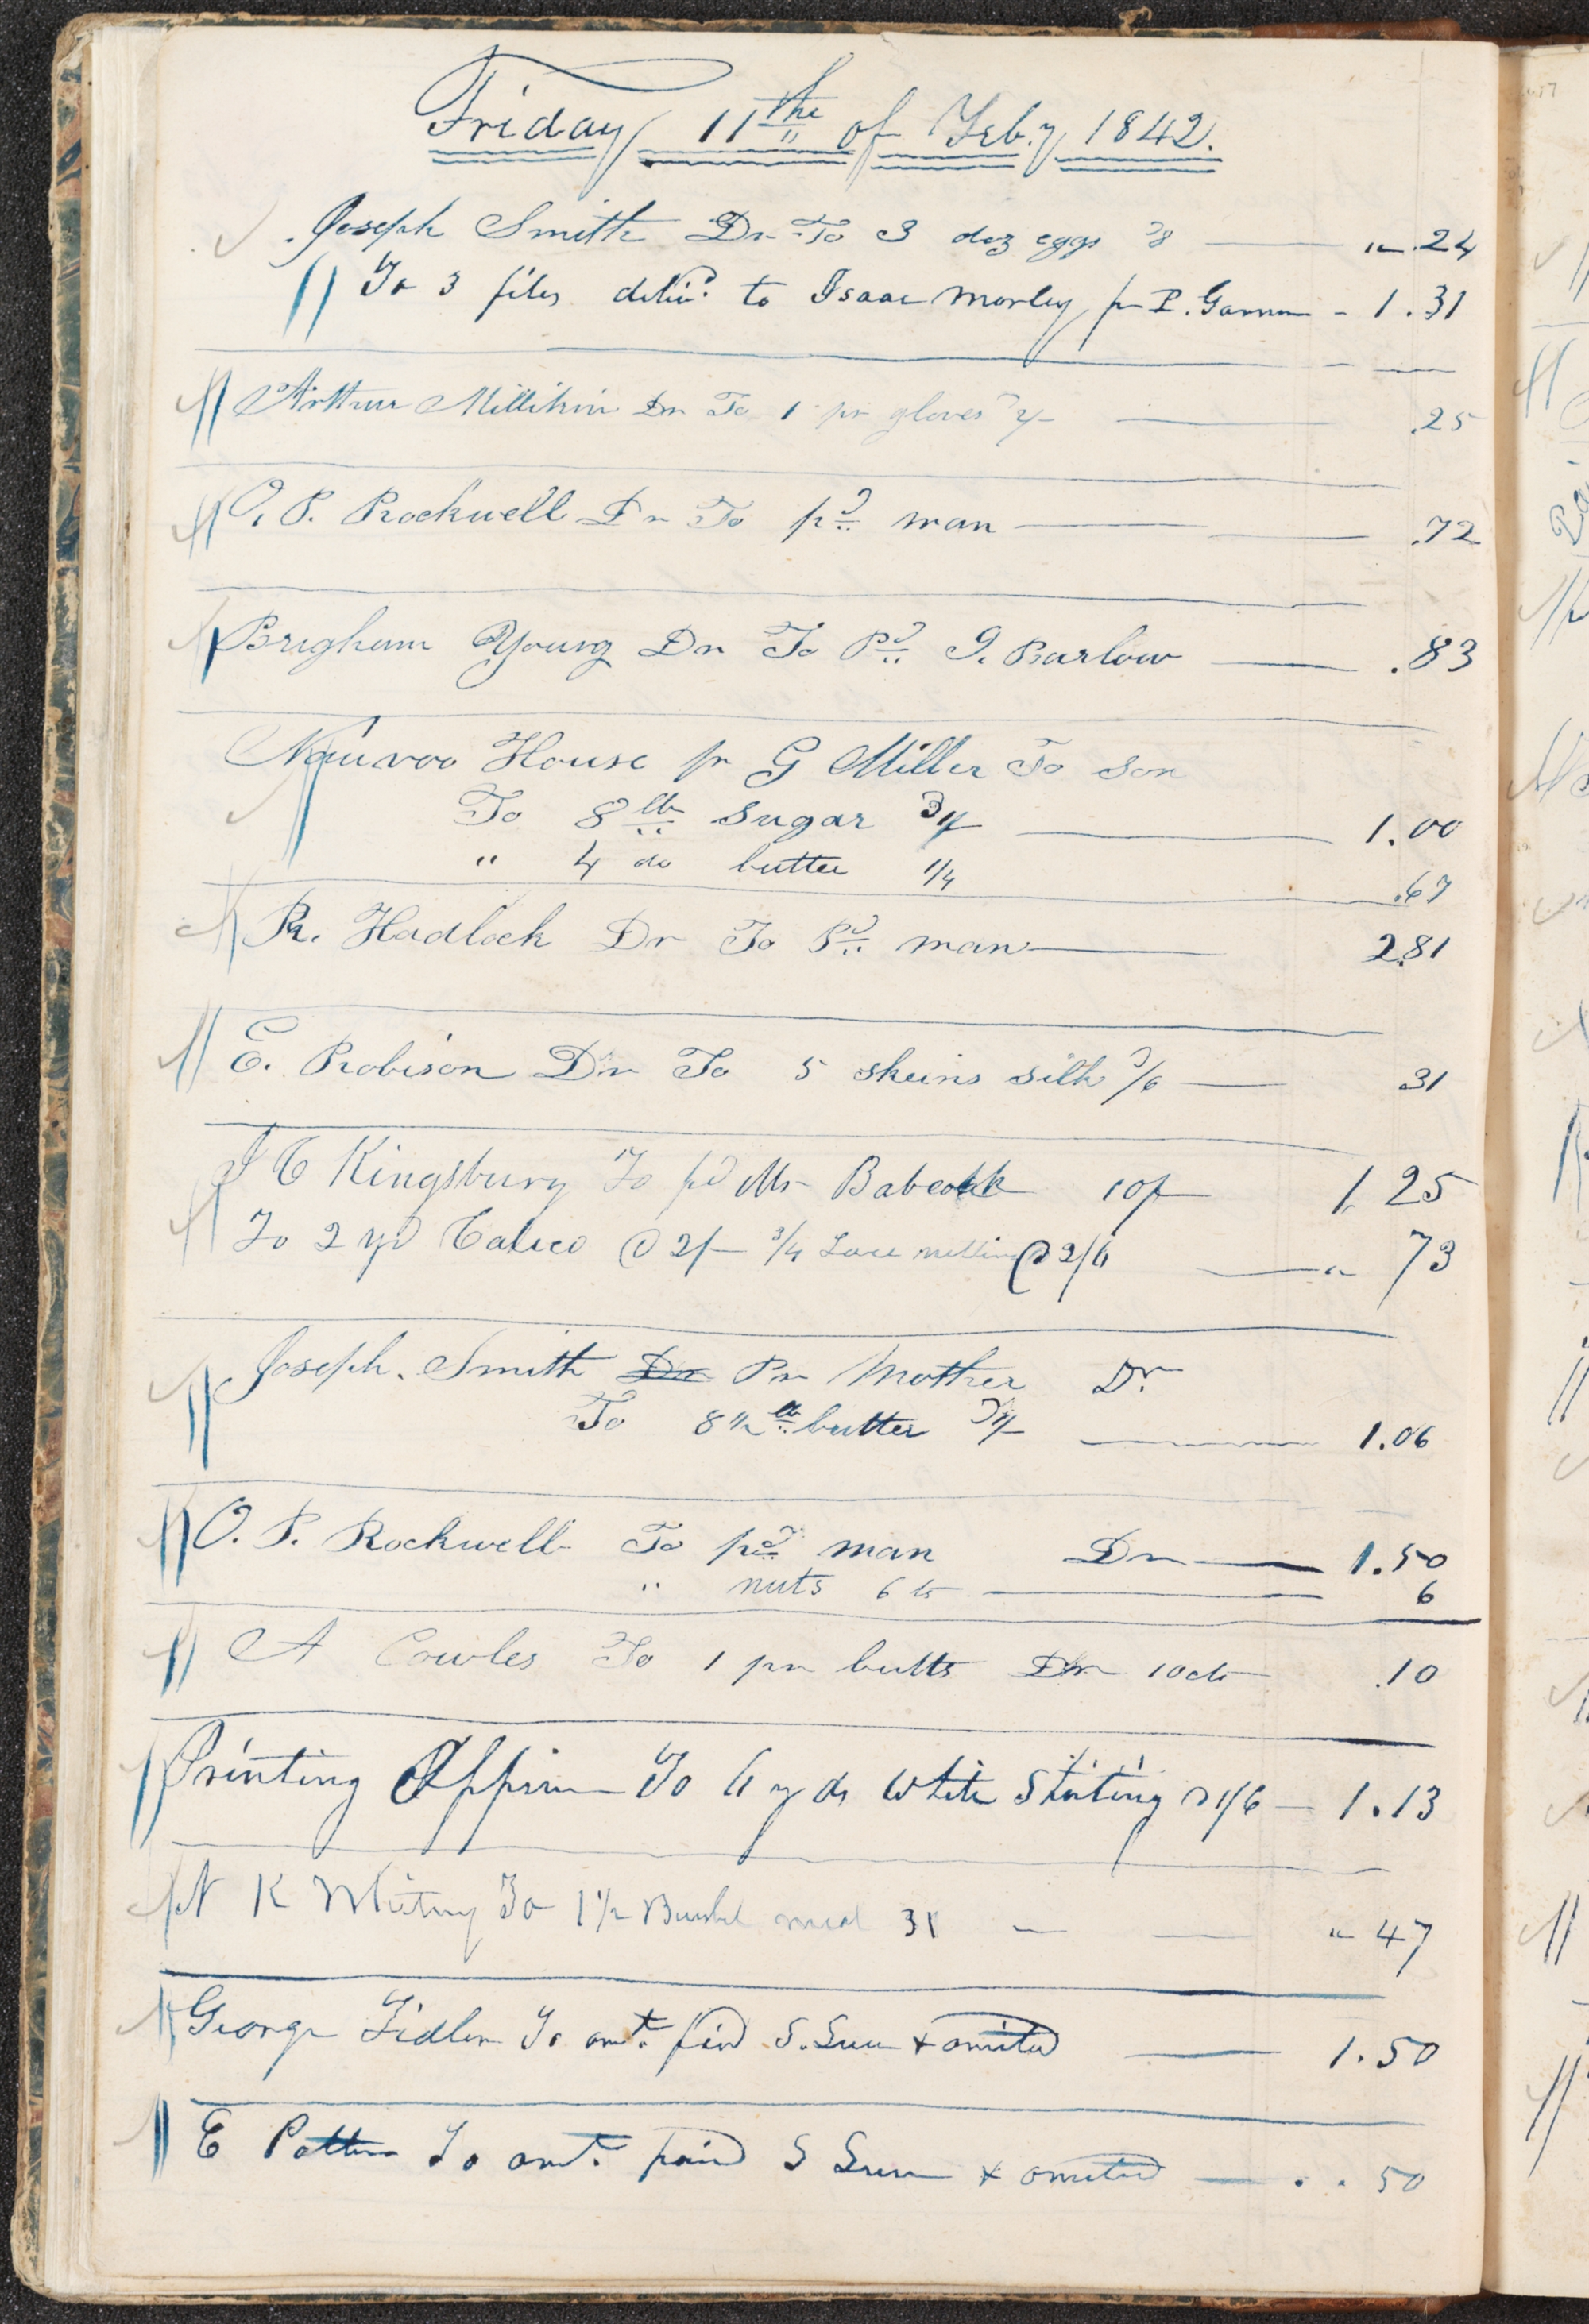 Friday 11th of Feby. 1842.
Joseph Smith Dr To 3 doz eggs 8 ".24
To 3 files deliv.d to Isaac Morley pr P. Garner - 1.31
Arthur Millikin Dr To 1 pr gloves 2/- .25
O. P. Rockwell Dr To pd man .72
Brigham Young Dr To Pd I. Barlow .83
Nauvoo House pr G Miller To Son
To 8 lb sugar 1/- 1.00
" 4 do butter 1/4 .67
R. Hadlock Dr To Pd man 2.81
E. Robison Dr To 5 skeins silk /6 31
J C Kingsbury To pd Mr Babcock 10/- 1.25
To 2 yd Calico @ 2/- 3/4 Lace netting @ 2/6 " 73
Joseph. Smith Dr Pr Mother Dr.
To 8 1/2 lb butter 1/- 1.06
O. P. Rockwell To pd man Dr 1.50
" nuts 6 cts 6
A Cowles To 1 pr butts Dr 10 cts .10
Printing Office To 6 yds White Shirting @ 1/6 - 1.13
N K Whitney To 1 1/2 Bushel meal 31 " 47
George Fidler To amt. paid S. & omitted 1.50
E Potter To amt. paid S & omitted . . 50